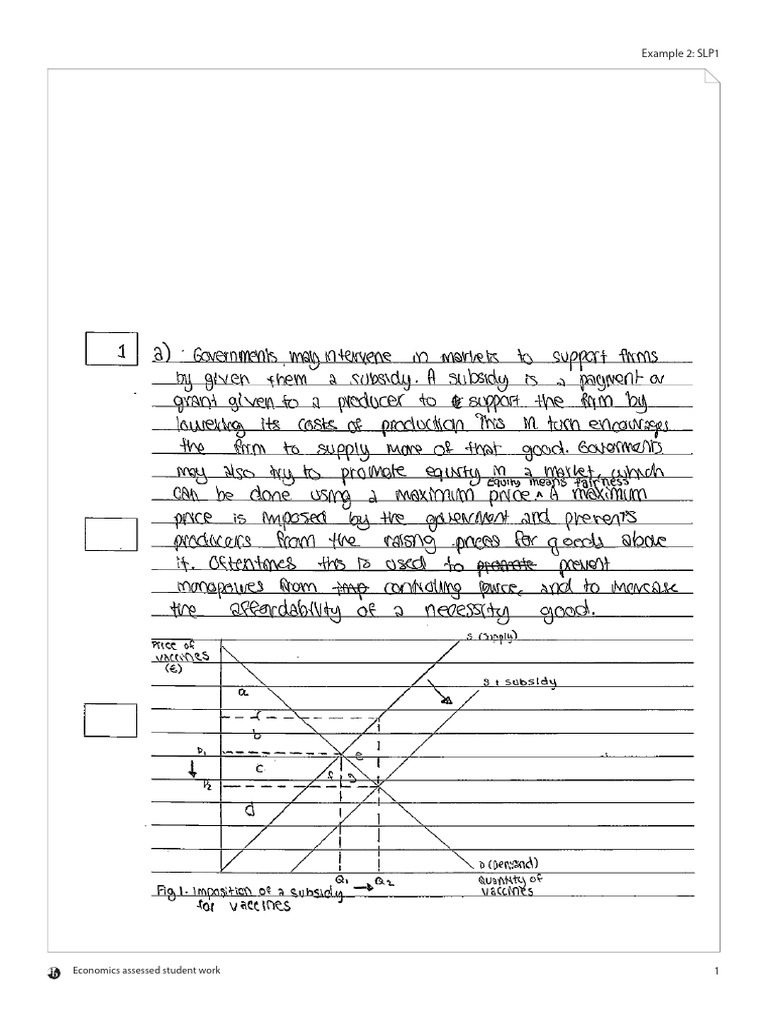 Example 2: SLP1
1
a) · Governments may intervene in markets to support firms
by given them a subsidy. A subsidy is a payment or
grant given to a producer to support the firm by
lowering its costs of production This in turn encourages
the firm to supply more of that good. Governments
may also try to promote equity in a market, which
equity means fairness
can be done using a maximum price ^ A maximum
price is imposed by the government and prevents
producers from the raising prices for goods above
it. Oftentimes this is used to promote prevent
monopolies from controlling price, and to increase
the affordability of a necessity good.
Price of
vaccines
(£)
S (supply)
S + subsidy
a
b
P1
c
e
f
g
P2
d
Q1
Q2
D (Demand)
Quantity of
vaccines
Fig 1. Imposition of a subsidy
for vaccines
Economics assessed student work
1